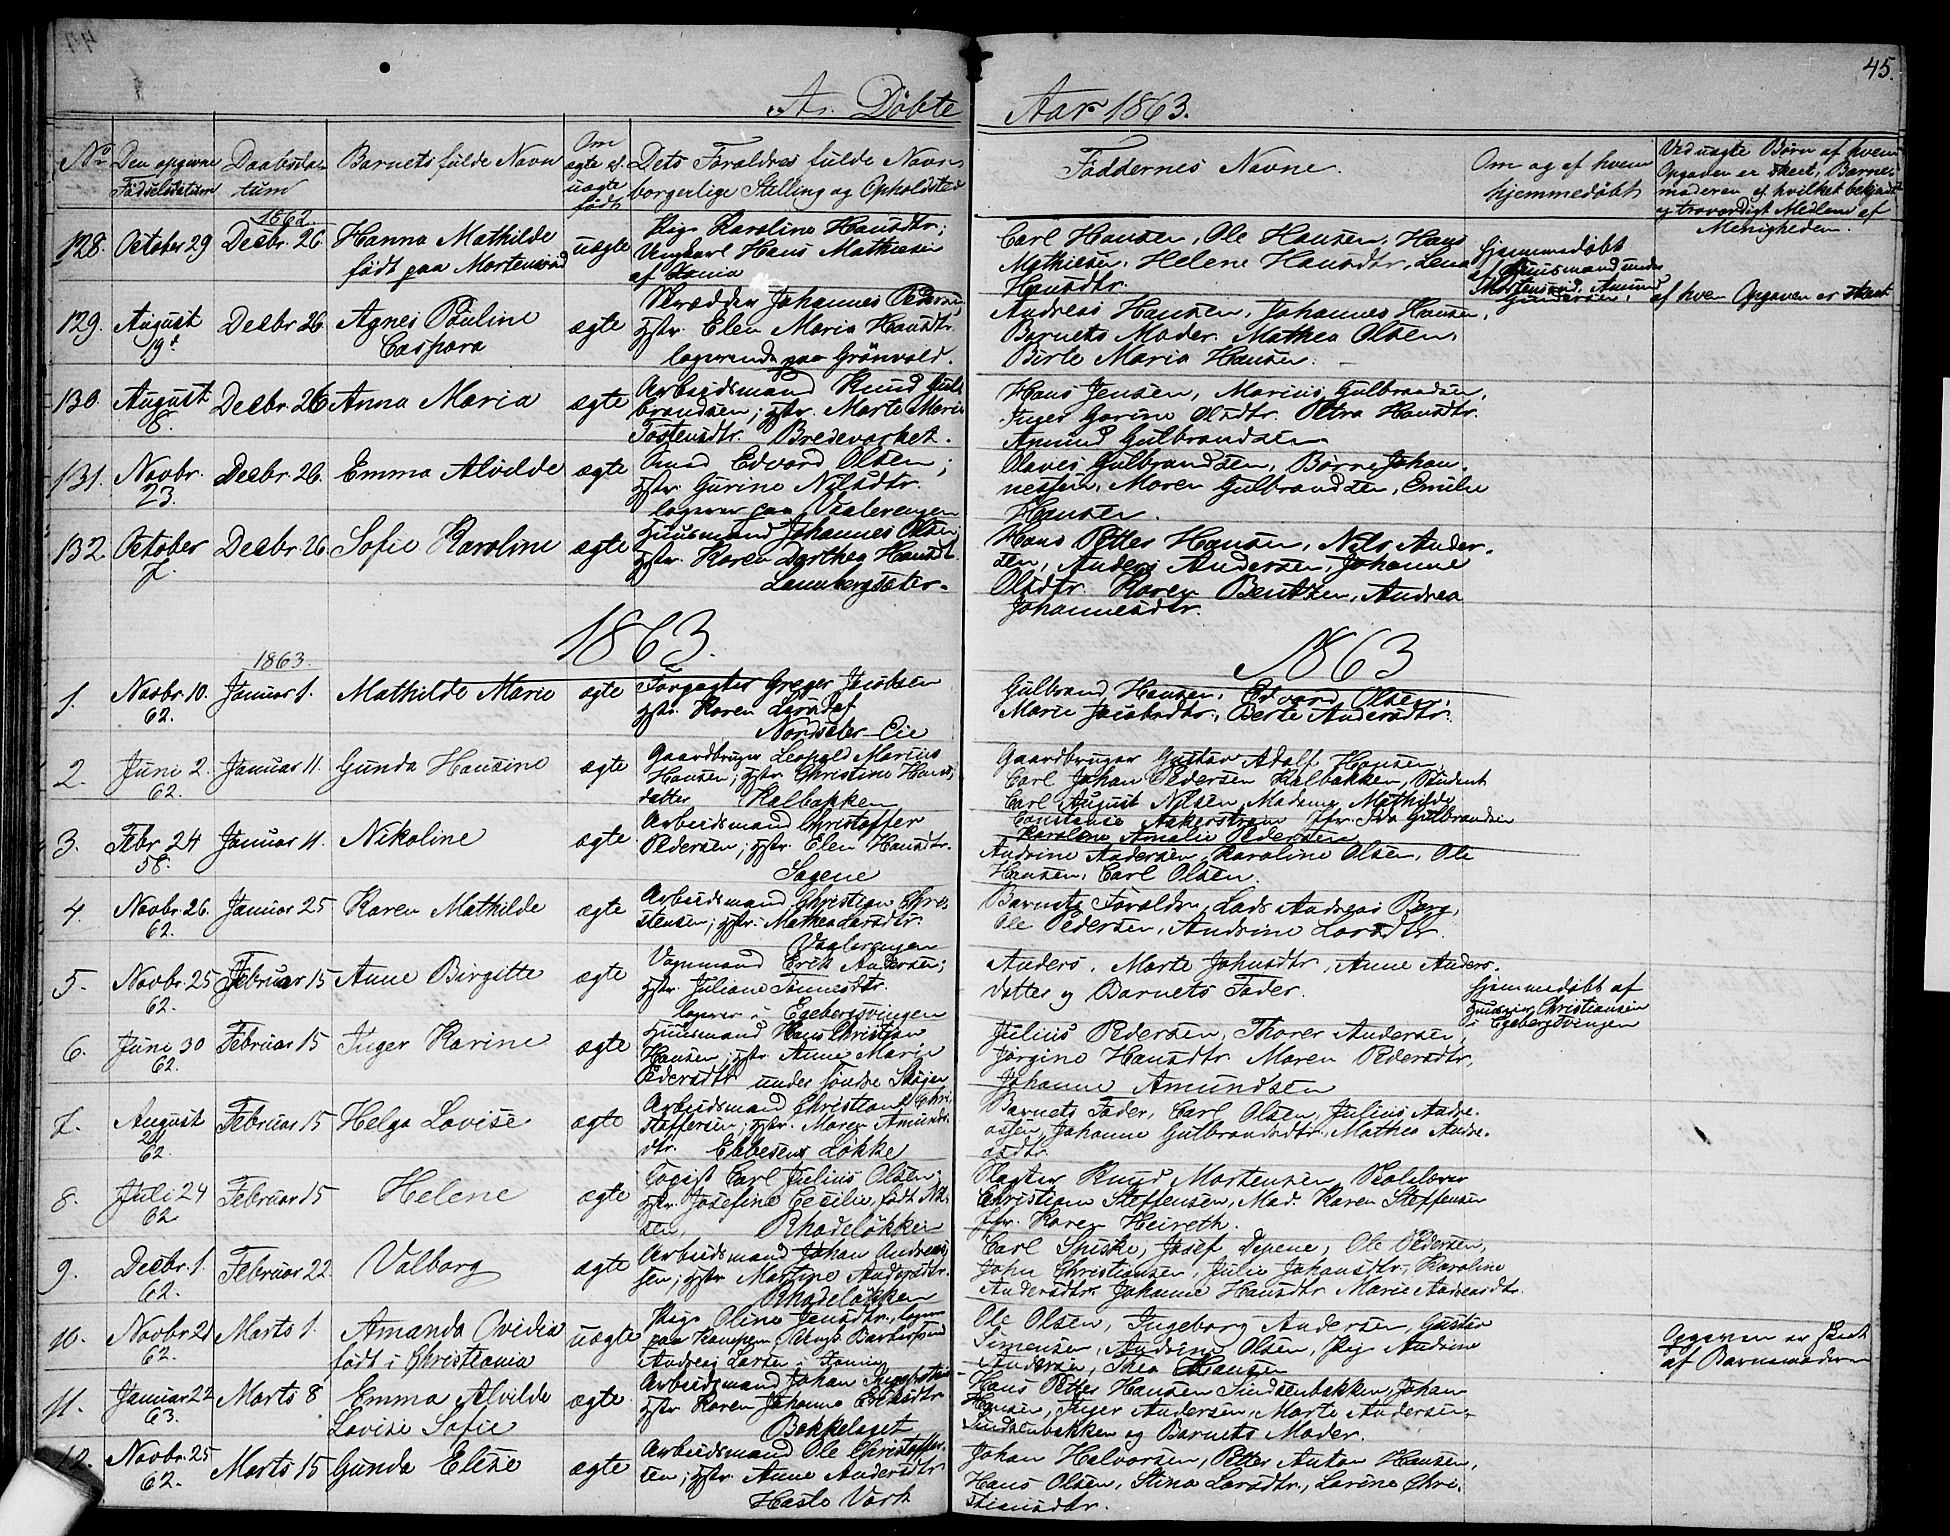 45.
Døbte Aar 1863.
No
Den opgivne Fødselsdatum
Daabsdatum
Barnets fulde Navn
Om ægte el. uægte født
Dets Forældres fulde Navn borgerlige Stilling og Opholdsted
Faddernes Navne.
Om og af hvem hjemmedøbt
Ved uægte Børn af hvem Opgaven er skeet, Barnemoderen el. hvilket bekjendt og troværdigt Medlem af Menigheden.
1862
128. October 29 Decbr. 26 Hanna Mathilde uægte Pige Karoline Hansdtr;
født paa Mortensrud Ungkarl Hans Mathiesen
af Xania
Carl Hansen, Ole Hansen, Hans
Mathiesen, Helene Hansdtr, Lena
Hansdtr.
Hjemmedøbt
af Huusmand under
Mortensrud, Amund
Gundersen, af hvem Opgaven er skeet
129. August Decbr 26 Agnes Pauline ægte Skrædder Johannes Pedersen,
19de Caspara Hstr. Elen Maria Hansdtr.
logerende paa Grönvold.
Andreas Hansen, Johannes Hansen,
Barnets Moder. Mathea Olsen,
Birte Maria Hansen.
130. August Decbr. 26 Anna Maria ægte Arbeidsmand Knud Gulbrandsen;
8. Hstr. Marte Marie
Tostensdtr. Bredeverket.
Hans Jensen, Marius Gulbrandsen,
Inger Gorine Olsdtr. Petra Hansdtr.
Amund Gulbrandsen
131. Novbr. Decbr 26. Emma Alvilde ægte Smed Edvard Olsen;
23. Hstr. Gurine Nilsdtr.
logerer paa Vaalerengen
Olaves Gulbrandsen, Børre Johannessen,
Maren Gulbrandsen, Emilie
Hansen.
132. October Decbr 26 Sofie Karoline ægte Huusmand Johannes Olsen;
7. Hstr. Karen Dorthea Hansdtr.
Lambergsæter.
Hans Petter Hansen, Nils Andersen,
Anders Andersen, Johanne
Olsdtr. Karen Bentsen, Andrea
Johannesdtr.
1863. 1863
1863.
1. Novbr. 10. Januar 1. Mathilde Marie ægte Forpagter Greger Jacobsen
62. Hstr. Karen Larsdat
Nordsæter Eie
Gulbrand Hansen, Edvard Olsen,
Marie Jacobsdtr, Berte Andersdtr.
2. Juni 2. Januar 11. Gunda Hansine ægte Gaardbruger Leopold Marius
62. Hansen; Hstr. Christine Hansdatter
Kalbakken
Gaardbruger Gustav Adolf Hansen,
Carl Johan Pedersen Kalbakken, Student
Carl August Nilsen, Madame Mathilde
Constance Aakerstrøm Jfr. Ida Gulbrandsen
Karoline Amalie Pedersen
3. Febr 24 Januar 11. Nikoline ægte Arbeidsmand Christoffer
58. Pedersen; Hstr. Elen Hansdtr.
Sagene
Andrine Andersen, Karoline Olsen, Ole
Hansen, Carl Olsen.
4. Novbr. 26. Januar 25 Karen Mathilde ægte Arbeidsmand Christian Christensen;
62. Hstr. Mathea Larsdtr.
Vaalerengen
Barnets Forældre, Lads Andreas Berg,
Ole Pedersen, Andrine Larsdtr.
5. Novbr. 25 Februar 15 Anne Birgitte ægte Vognmand Erik Andersen;
62. Hstr. Juliane Tönnesdtr.
logerer i Egebergsvingen
Anders, Marte Johnsdtr, Anne Andersdatter
og Barnets Fader.
Hjemmedøbt af
Christiansen
i Egebergsvingen
6. Juni 30 Februar 15 Inger Karine ægte Huusmand Hans Christian
62. Hansen; Hstr. Anne Marie
Pedersdtr under Søndre Skøjen
Julius Pedersen, Thorer Andersen,
Jørgine Hansdtr. Maren Pedersdtr,
Johanne Amundsen
7. August Februar 15 Helga Lovise ægte Arbeidsmand Christian Christoffersen;
62. Hstr. Maren Amundsdtr.
Ebbesens Løkke
Barnets Fader, Carl Olsen, Julius Andreassen,
Johanne Gulbrandsdtr. Mathea Andreasdtr.
8. Juli 24 Februar 15 Helene ægte Logist Carl Julius Olsen;
62 Hstr. Josefine Cecilie født Nilsen,
Rhodeløkken
Slagter Knud Mortensen, Skolelærer
Christian Steffensen, Mad. Karen Steffensen
Jfr. Karen Heireth.
9. Decbr. 1. Februar 22 Valborg ægte Arbeidsmand Johan Andreassen;
62. Hstr. Martine Andersdtr.
Rhodeløkken
Carl Spiske, Josef Depene, Ole Pedersen,
John Christiansen, Julie Johansdtr, Karoline
Andersdtr. Johanne Hansdtr Marie Andreasdtr.
10. Novbr. 21 Marts 1. Amanda Ovidia uægte Pige Oline Jensdtr, loger
62. født i Christiania paa Kampen
Andreas Larsen i Xania
Ole Olsen, Ingeborg Andersen, Gustav
Simensen, Andrine Olsen, Pige Andrine
Andersen, Thea Hansen
Opgaven er skeet
af Barnemoderen
11. Januar 22 Marts 8 Emma Alvilde ægte Arbeidsmand Johan
63. Lovise Sofie Hstr. Karen Johanne Eriksdtr
Bekkelaget
Hans Petter Hansen Sinsenbakken, Johan
Hansen, Inger Andersen, Marte Andersen
Sinsenbakken og Barnets Moder.
12. Novbr. 25 Marts 15 Gunda Elise ægte Arbeidsmand Ole Christoffersen;
62. Hstr. Anne Andersdtr
Hasle Værk
Johan Halvorsen, Petter Anton Hansen,
Hans Olsen, Stina Larsdtr, Larine Christiansdtr.